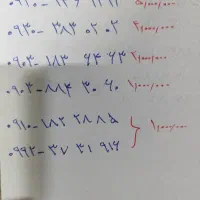 ۰۹۳۰- ۳۸۳ ۰۲ ۰۲ ۲٬۰۰۰٬۰۰۰
۰۹۰۳- ۱۸۳ ۴۴ ۲۳ ۱٬۰۰۰٬۰۰۰
۰۹۰۳- ۸۸۴ ۳۰ ۴۰ ۱٬۰۰۰٬۰۰۰
۰۹۱۰- ۱۸۲ ۲۸ ۸۵
۰۹۹۲- ۳۷ ۳۱ ۹۱۶ } ۱٬۰۰۰٬۰۰۰